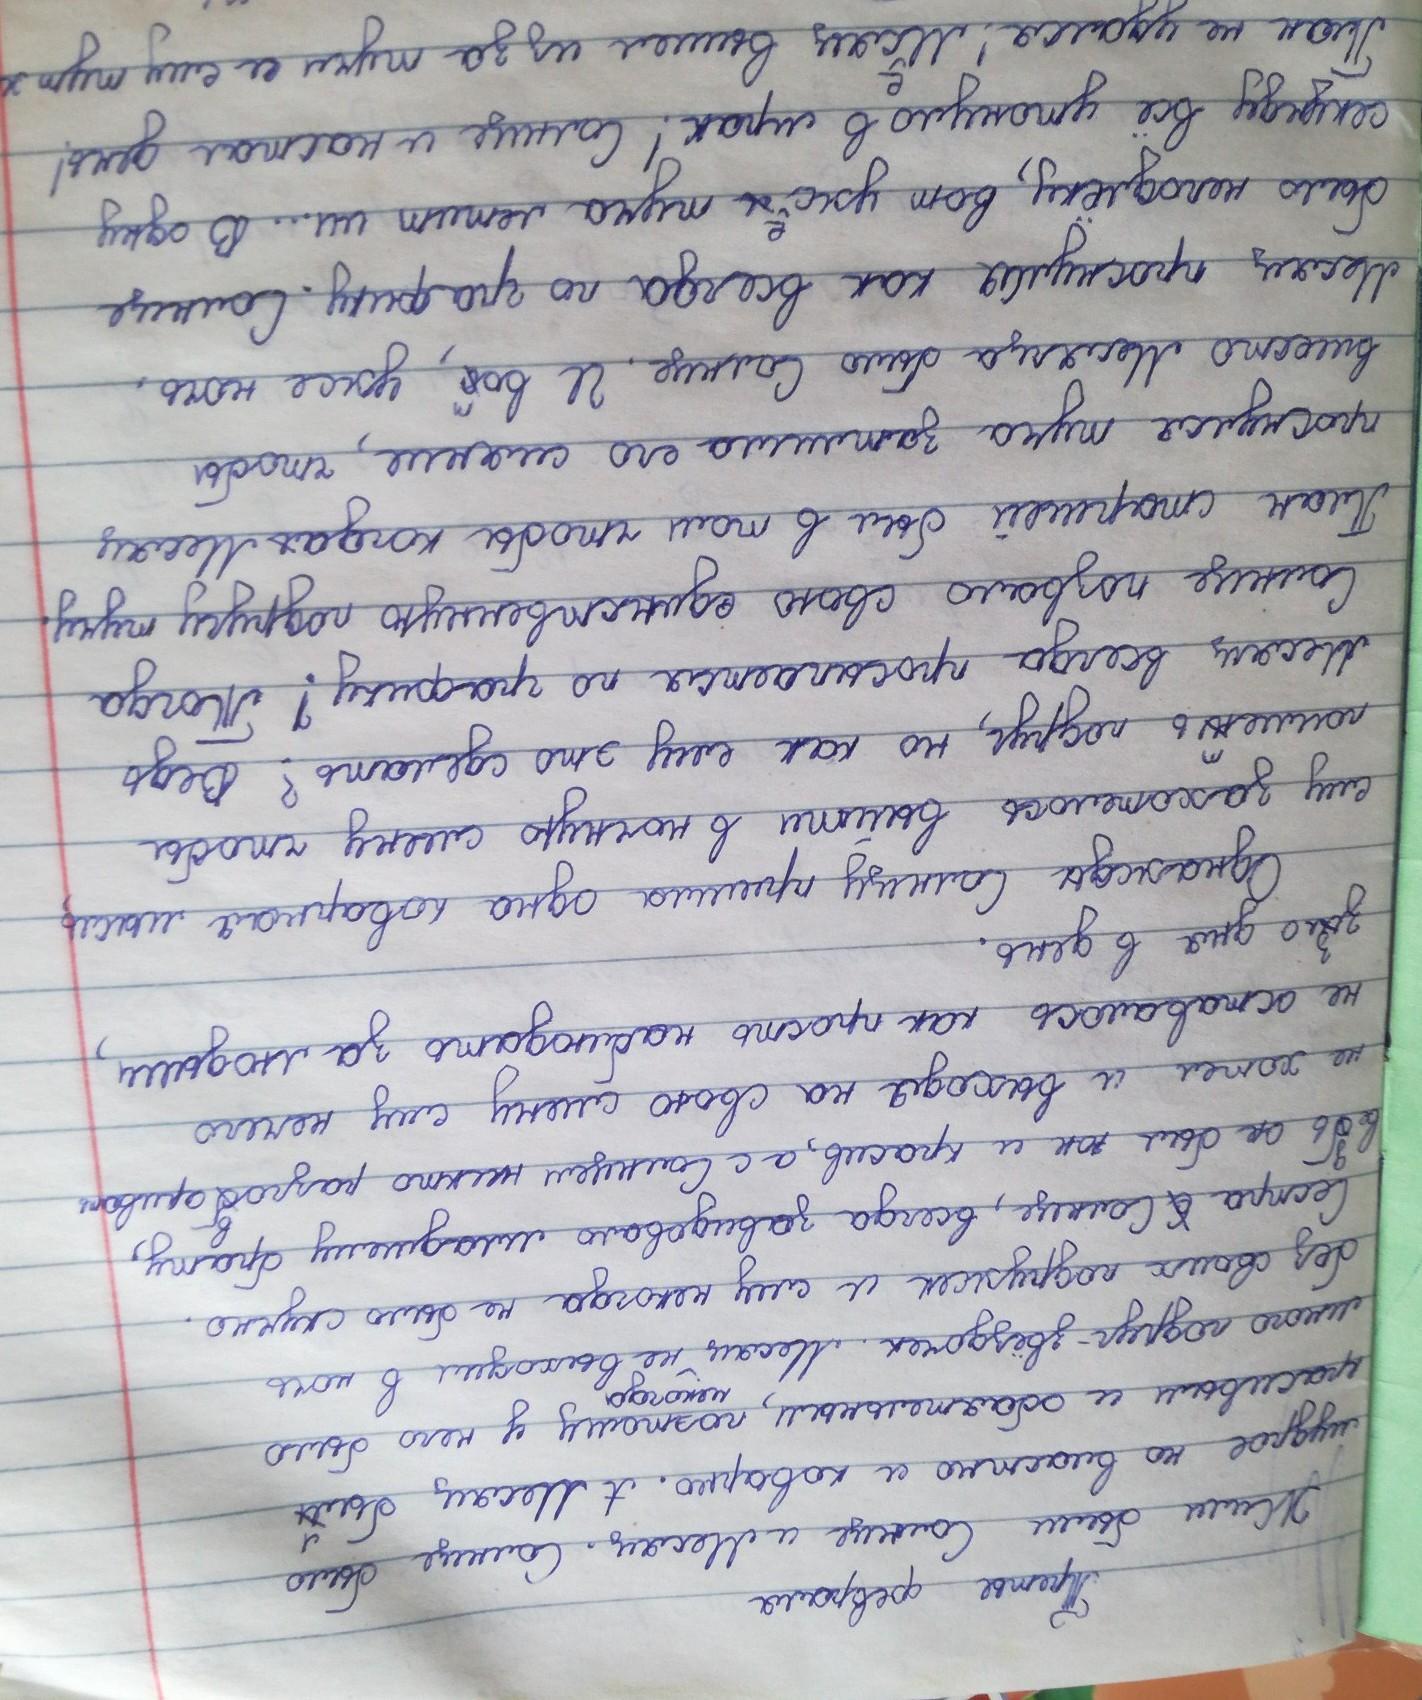 Третье февраля
Жили были Солнце и Месяц. Солнце было
мудрое но властно и коварно. А Месяц был
красивым и обаятельным, поэтому у него было
много подруг-звёздочек. Месяц не выходил в ночь
некогда
без своих подружек и ему некогда не было скучно.
Сестра Солнце, всегда завидовало младшему брату,
ведь он был так и красив, а с Солнцем никто разговаривать
не хотел и выходя на свою смену ему нечего
не оставалось как просто наблюдать за людьми,
изо дня в день.
Однажды Солнцу пришла одна коварная мысль,
ему захотелось выйти в ночную смену чтобы
поиметь подруг, но как ему это сделать? Ведь
Месяц всегда просыпается по графику! Тогда
Солнце позвало свою единственную подругу тучку.
План старшей был в том чтобы когда Месяц
проснулся тучка затмила его сияние, чтобы
вместо Месяца было Солнце. И вот, уже ночь.
Месяц проснулся как всегда по графику. Солнце
было наготове, вот уже тучка летит ии... В одну
секунду всё утонуло в мрак! Солнце и настал день!
План не удался! Месяц вышел из за тучки и ему тут